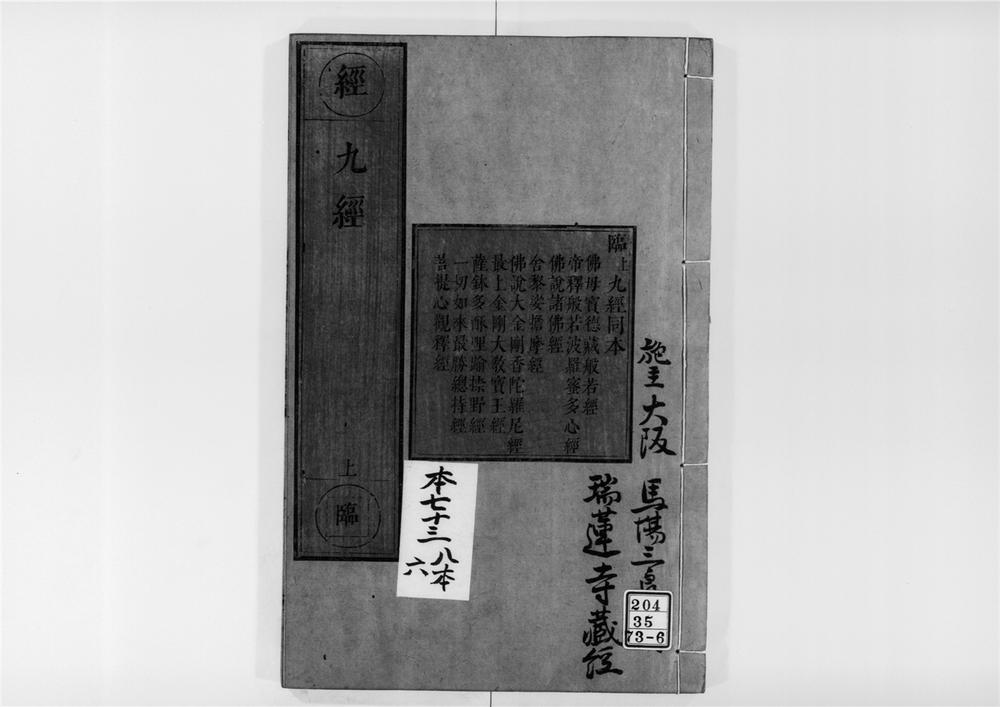 經
九經
上
臨
臨上九經同本
佛母寳德藏般若經
帝釋般若波羅蜜多心經
佛說諸佛經
舍黎娑擔摩經
佛說大金剛香陀羅尼經
最上金剛大敎寳王經
薩鉢多酥哩踰捺野經
一切如來最勝總持經
菩提心觀釋經
施主大阪
馬場三
瑞蓮寺藏經
本七十三
八本
六
204
35
73-6